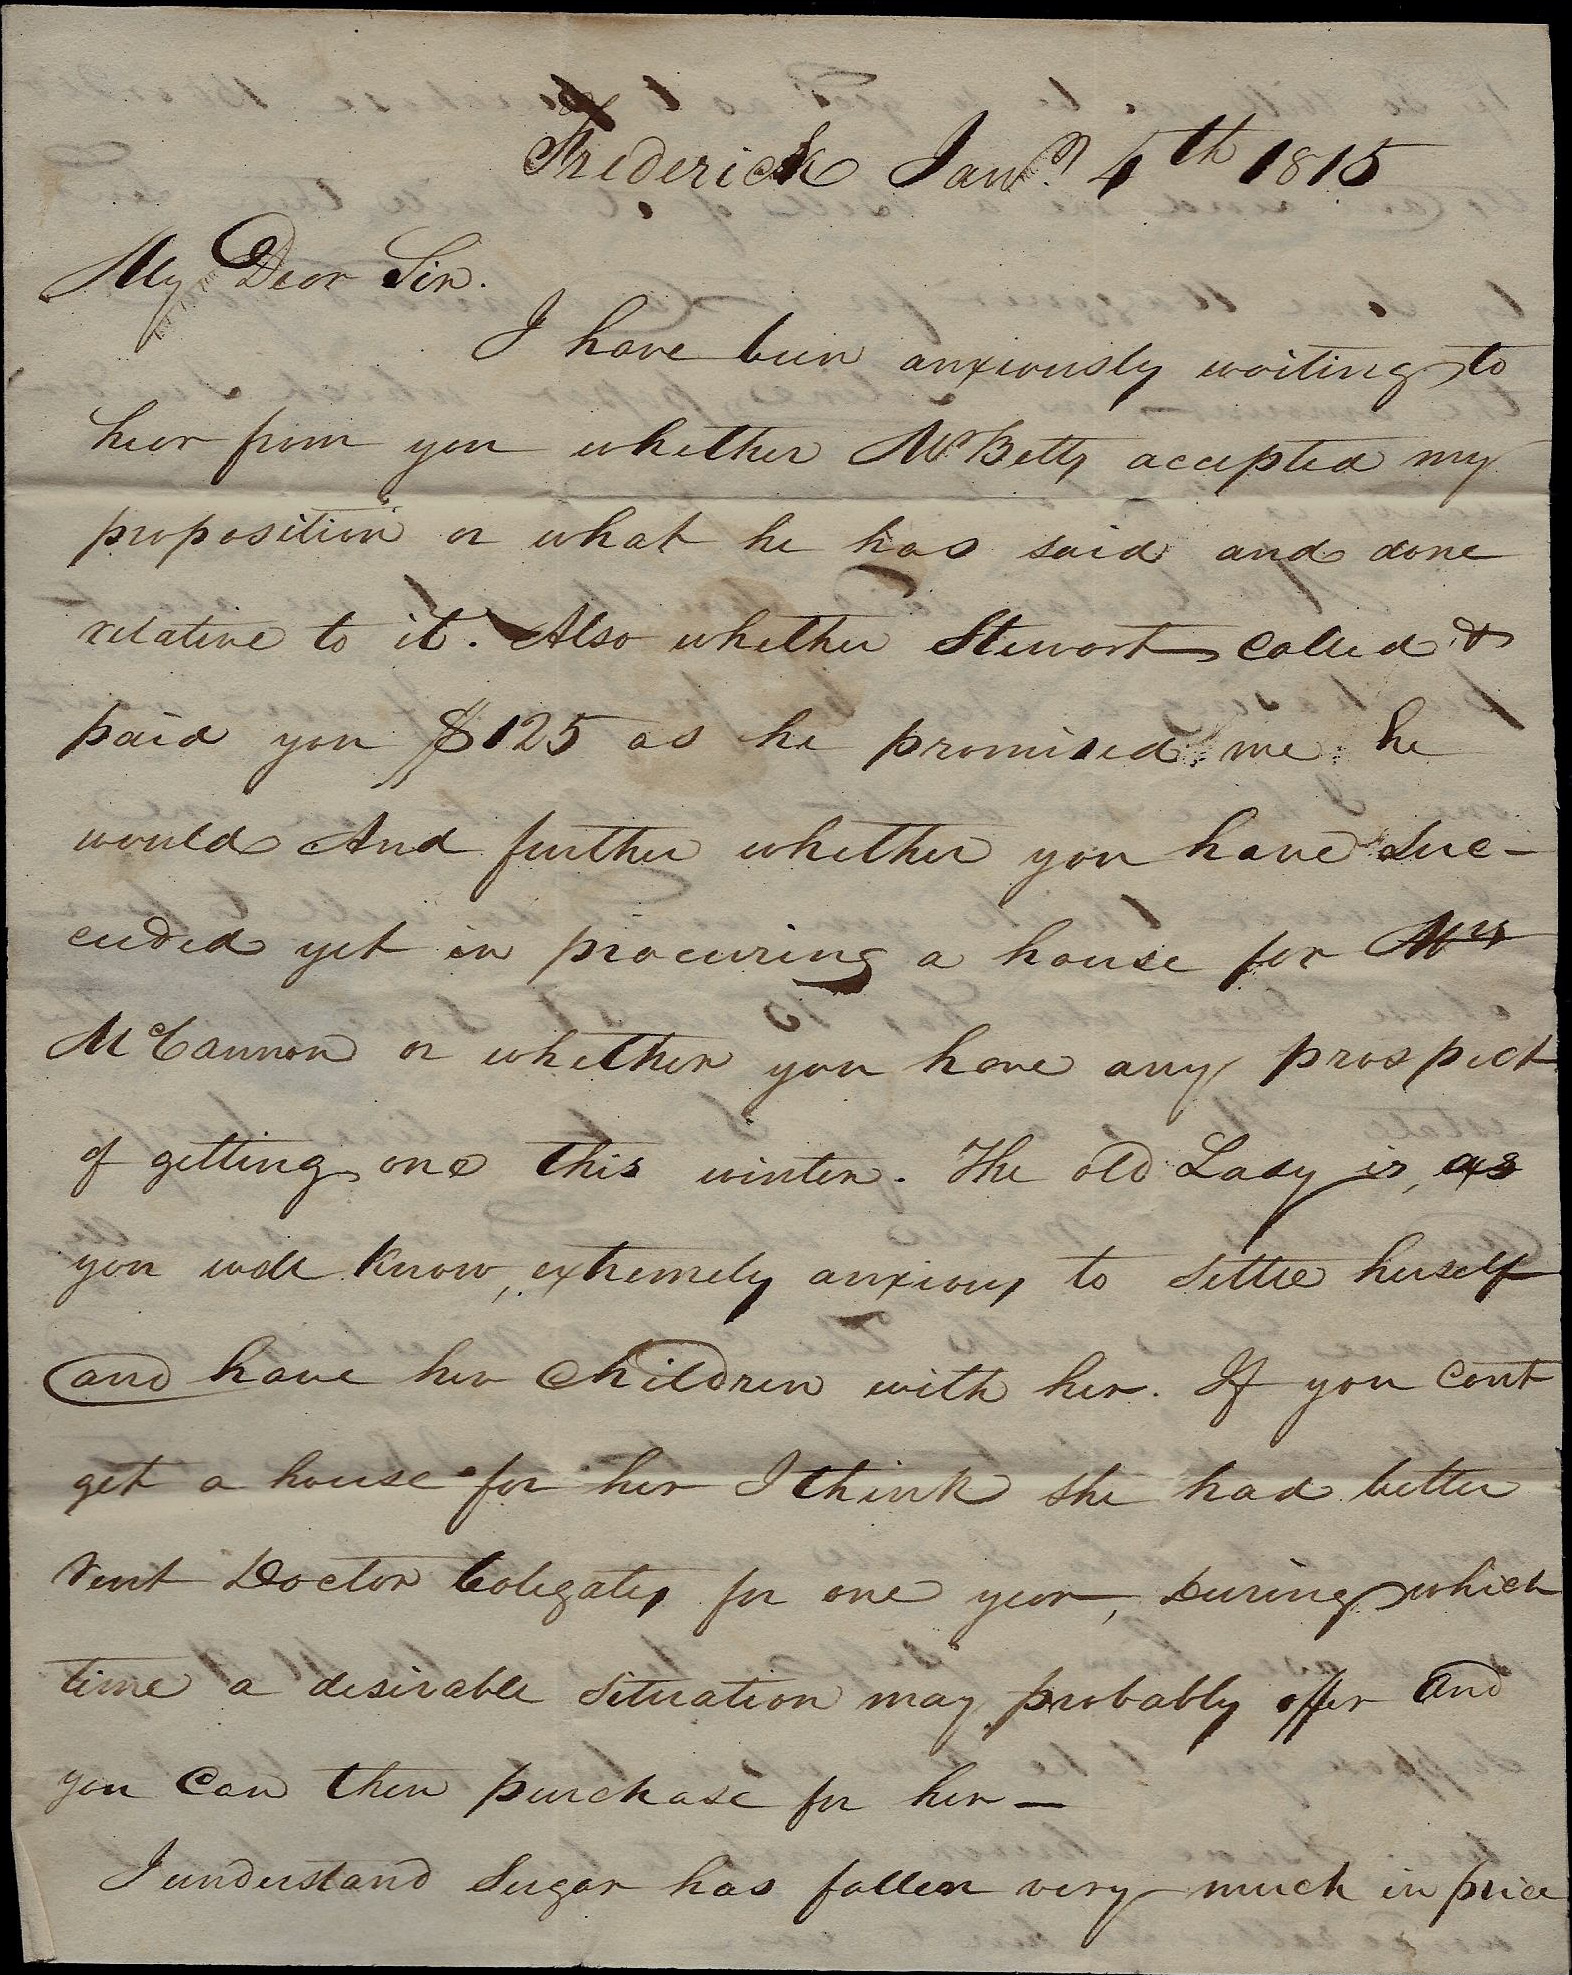 Frederick Jany 4th 1815
My Dear Sir.
I have been anxiously waiting to
hear from you whether Mr Betty accepted my
proposition or what he has said and done
relative to it. Also whether Stewart called &
paid you $125 as he promised me he
would And further whether you have suc-
ceeded yet in procuring a house for Mrs
McCannon or whether you have any prospect
of getting one this winter. The old Lady is, as
you well know, extremely anxious to settle herself
and have her children with her. If you cant
get a house for her I think she had better
rent Doctor Colegates for one year, during which
time a desirable situation may probably offer and
you can then purchase for her—
I understand Sugar has fallen very much in price